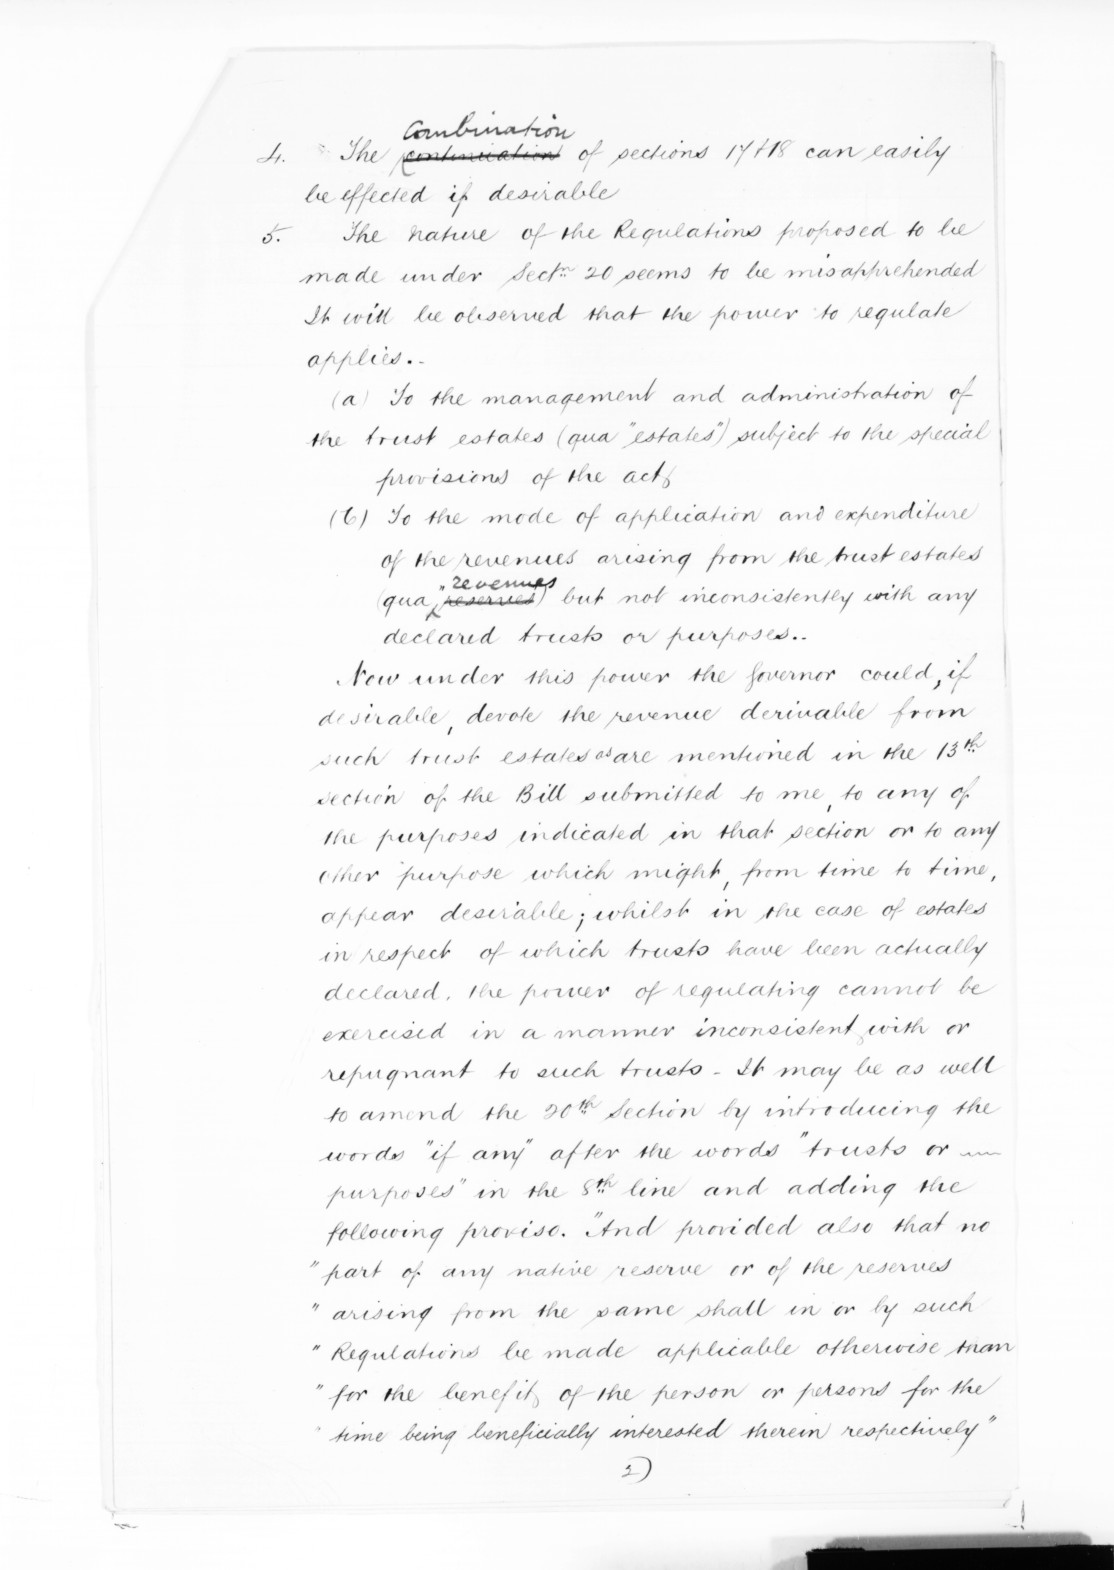 Combination
4. The continuation of sections 17 & 18 can easily
be effected if desirable
5. The nature of the Regulations proposed to be
made under Sectn. 20 seems to be misapprehended
It will be observed that the power to regulate
applies.-
(a) To the management and administration of
the trust estates (qua "estates") subject to the special
provisions of the act,
(b) To the mode of application and expenditure
of the revenues arising from the trust estates
revenues
(qua "reserves") but not inconsistently with any
declared trusts or purposes..
Now under this power the Governor could, if
desirable, devote the revenue derivable from
such trust estates as are mentioned in the 13th
section of the Bill submitted to me, to any of
the purposes indicated in that section or to any
other purpose which might, from time to time,
appear desirable; whilst in the case of estates
in respect of which trusts have been actually
declared, the power of regulating cannot be
exercised in a manner inconsistent, with or
repugnant to such trusts - It may be as well
to amend the 20th Section by introducing the
words "if any" after the words "trusts or
purposes" in the 8th line and adding the
following proviso. "And provided also that no
" part of any native reserve or of the reserves
" arising from the same shall in or by such
" Regulations be made applicable otherwise than
" for the benefit, of the person or persons for the
" time being beneficially interested therein respectively"
2)